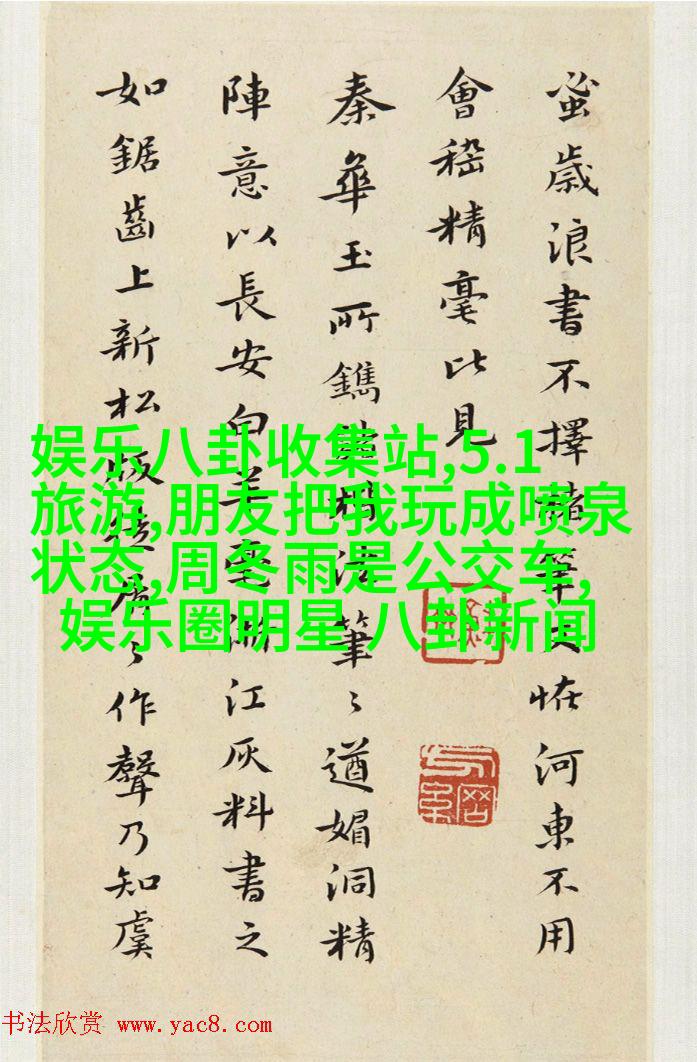 蚤歳浪書不擇諸筆恠河東不用
會嵇精毫比見
秦華玉所鐫筆〻遒媚洞精
陣意以長安白羊毫江灰料書之
如鋸齒上新松版〻作聲乃知虞
娱乐八卦收集站,5.1
旅游,朋友把我玩成喷泉
状态,周冬雨是公交车,
娱乐圈明星 八卦新闻
书法欣赏 www.yac8.com